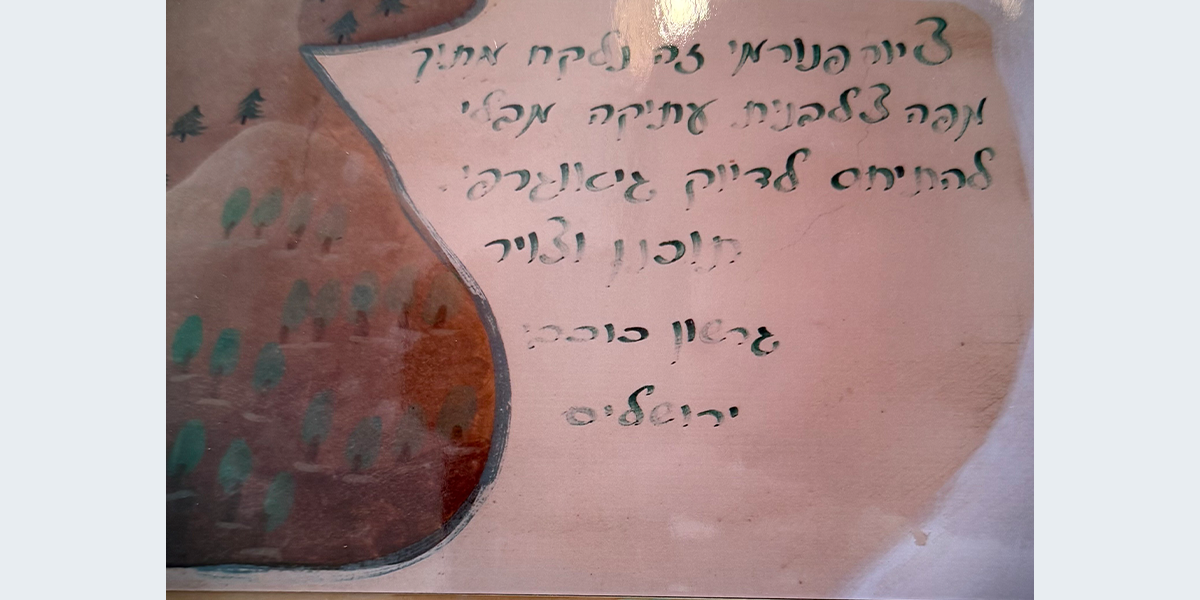 ציור פנורמי זה נלקח מתוך
מפה צלבנית עתיקה מבלי
להתיחס לדיוק גיאוגרפי.
תוכנן וצויר
גרשון כוכבי
ירושלים